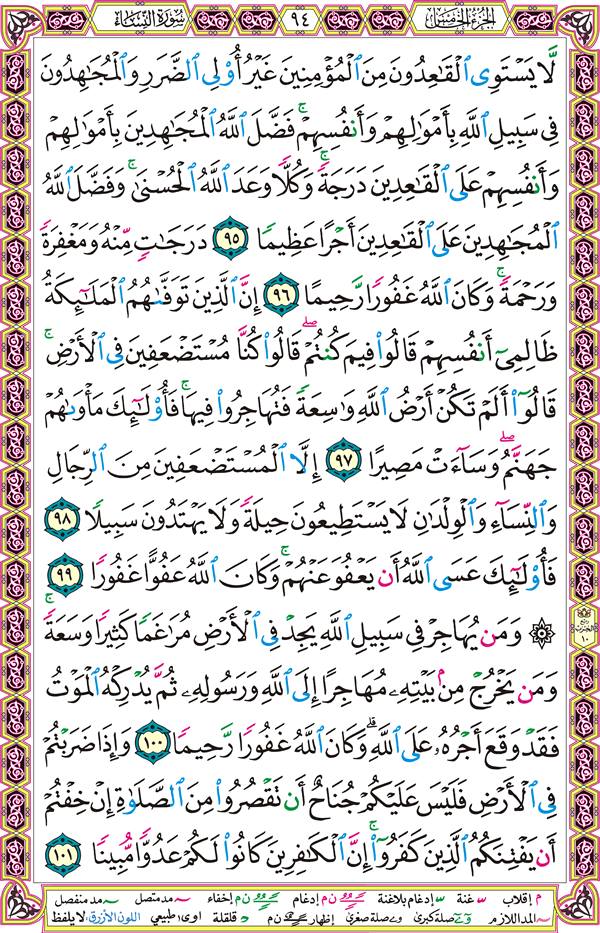 الجزء الخامس ٩٤ سورة النساء
لَّا يَسْتَوِى ٱلْقَـٰعِدُونَ مِنَ ٱلْمُؤْمِنِينَ غَيْرُ أُو۟لِى ٱلضَّرَرِ وَٱلْمُجَـٰهِدُونَ
فِى سَبِيلِ ٱللَّهِ بِأَمْوَٰلِهِمْ وَأَنفُسِهِمْ ۚ فَضَّلَ ٱللَّهُ ٱلْمُجَـٰهِدِينَ بِأَمْوَٰلِهِمْ
وَأَنفُسِهِمْ عَلَى ٱلْقَـٰعِدِينَ دَرَجَةً ۚ وَكُلًّا وَعَدَ ٱللَّهُ ٱلْحُسْنَىٰ ۚ وَفَضَّلَ ٱللَّهُ
ٱلْمُجَـٰهِدِينَ عَلَى ٱلْقَـٰعِدِينَ أَجْرًا عَظِيمًا ٩٥ دَرَجَـٰتٍ مِّنْهُ وَمَغْفِرَةً
وَرَحْمَةً ۚ وَكَانَ ٱللَّهُ غَفُورًا رَّحِيمًا ٩٦ إِنَّ ٱلَّذِينَ تَوَفَّىٰهُمُ ٱلْمَلَـٰٓئِكَةُ
ظَالِمِىٓ أَنفُسِهِمْ قَالُوا۟ فِيمَ كُنتُمْ ۖ قَالُوا۟ كُنَّا مُسْتَضْعَفِينَ فِى ٱلْأَرْضِ ۚ
قَالُوٓا۟ أَلَمْ تَكُنْ أَرْضُ ٱللَّهِ وَٰسِعَةً فَتُهَاجِرُوا۟ فِيهَا ۚ فَأُو۟لَـٰٓئِكَ مَأْوَىٰهُمْ
جَهَنَّمُ ۖ وَسَآءَتْ مَصِيرًا ٩٧ إِلَّا ٱلْمُسْتَضْعَفِينَ مِنَ ٱلرِّجَالِ
وَٱلنِّسَآءِ وَٱلْوِلْدَٰنِ لَا يَسْتَطِيعُونَ حِيلَةً وَلَا يَهْتَدُونَ سَبِيلًا ٩٨
فَأُو۟لَـٰٓئِكَ عَسَى ٱللَّهُ أَن يَعْفُوَ عَنْهُمْ ۚ وَكَانَ ٱللَّهُ عَفُوًّا غَفُورًا ٩٩
۞ وَمَن يُهَاجِرْ فِى سَبِيلِ ٱللَّهِ يَجِدْ فِى ٱلْأَرْضِ مُرَٰغَمًا كَثِيرًا وَسَعَةً ۚ
وَمَن يَخْرُجْ مِنۢ بَيْتِهِۦ مُهَاجِرًا إِلَى ٱللَّهِ وَرَسُولِهِۦ ثُمَّ يُدْرِكْهُ ٱلْمَوْتُ
فَقَدْ وَقَعَ أَجْرُهُۥ عَلَى ٱللَّهِ ۗ وَكَانَ ٱللَّهُ غَفُورًا رَّحِيمًا ١٠٠ وَإِذَا ضَرَبْتُمْ
فِى ٱلْأَرْضِ فَلَيْسَ عَلَيْكُمْ جُنَاحٌ أَن تَقْصُرُوا۟ مِنَ ٱلصَّلَوٰةِ إِنْ خِفْتُمْ
أَن يَفْتِنَكُمُ ٱلَّذِينَ كَفَرُوٓا۟ ۚ إِنَّ ٱلْكَـٰفِرِينَ كَانُوا۟ لَكُمْ عَدُوًّا مُّبِينًا ١٠١
م إقلاب غنة إدغام بلاغنة ن م إدغام ن م إخفاء مد متصل مد منفصل
المد اللازم صلة كبرى صلة صغرى إظهار ن م قلقلة اوى طبيعي اللون الأزرق لا يلفظ